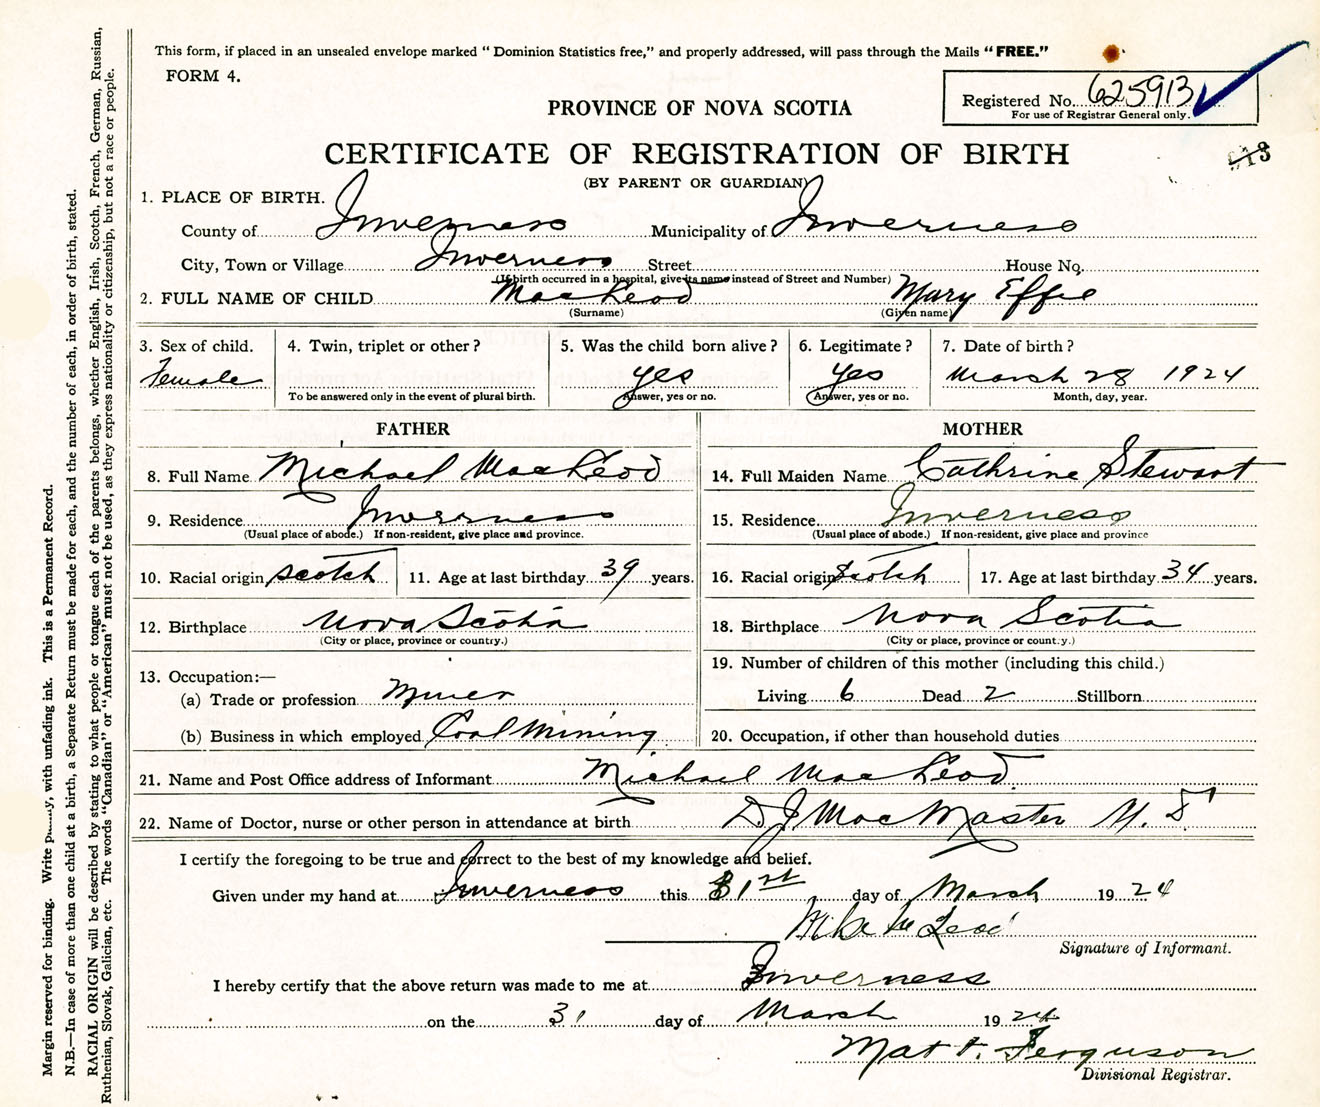 This form, if placed in an unsealed envelope marked "Dominion Statistics free," and properly addressed, will pass through the Mails "FREE."
FORM 4.
Registered No. 625913
For use of Registrar General only.
PROVINCE OF NOVA SCOTIA
CERTIFICATE OF REGISTRATION OF BIRTH
(BY PARENT OR GUARDIAN)
1. PLACE OF BIRTH.
County of Inverness Municipality of Inverness
City, Town or Village Inverness Street House No.
(If birth occurred in a hospital, give its name instead of Street and Number)
2. FULL NAME OF CHILD MacLeod Mary Effie
(Surname) (Given name)
3. Sex of child. 4. Twin, triplet or other? 5. Was the child born alive? 6. Legitimate? 7. Date of birth?
Female yes yes March 28 1924
To be answered only in the event of plural birth. Answer, yes or no. Answer, yes or no. Month, day, year.
FATHER
8. Full Name Michael MacLeod
9. Residence Inverness
(Usual place of abode.) If non-resident, give place and province.
10. Racial origin scotch 11. Age at last birthday 39 years.
12. Birthplace Nova Scotia
(City or place, province or country.)
13. Occupation:—
(a) Trade or profession Miner
(b) Business in which employed Coal Mining
MOTHER
14. Full Maiden Name Cathrine Stewart
15. Residence Inverness
(Usual place of abode.) If non-resident, give place and province
16. Racial origin Scotch 17. Age at last birthday 34 years.
18. Birthplace Nova Scotia
(City or place, province or country.)
19. Number of children of this mother (including this child.)
Living 6 Dead 2 Stillborn
20. Occupation, if other than household duties
21. Name and Post Office address of Informant Michael MacLeod
22. Name of Doctor, nurse or other person in attendance at birth D J MacMaster M. D
I certify the foregoing to be true and correct to the best of my knowledge and belief.
Given under my hand at Inverness this 31st day of March 1924
Mike McLeod
Signature of Informant.
I hereby certify that the above return was made to me at Inverness
on the 31 day of March 1924
Mat F. Ferguson
Divisional Registrar.
Margin reserved for binding. Write with unfading ink. This is a Permanent Record.
N.B.—In case of more than one child at a birth, a Separate Return must be made for each, and the number of each, in order of birth, stated.
RACIAL ORIGIN will be described by stating to what people or tongue each of the parents belongs, whether English, Irish, Scotch, French, German, Russian,
Ruthenian, Slovak, Galician, etc. The words "Canadian" or "American" must not be used, as they express nationality or citizenship, but not a race or people.